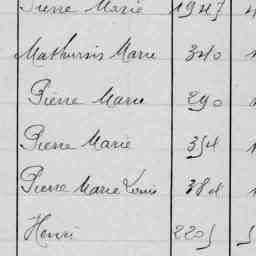 Pierre Marie 1947
Mathurin Marie 340
Pierre Marie 290
Pierre Marie 354
Pierre Marie Louis 384
Henri 2205